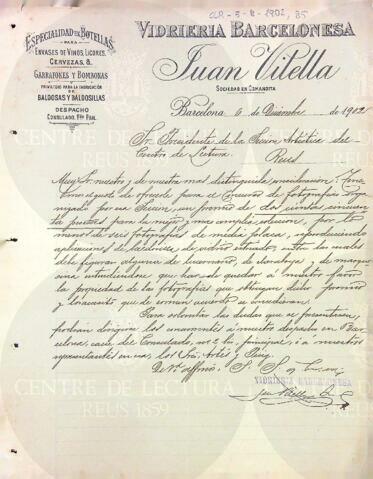 CLR-5-8-1902, 85
ESPECIALIDAD EN BOTELLAS
PARA
ENVASES DE VINOS, LICORES,
CERVEZAS, &.
GARRAFONES Y BOMBONAS
PRIVILEGIO PARA LA FABRICACIÓN
DE
BALDOSAS Y BALDOSILLAS
DESPACHO
CONSULADO, PRAL.
VIDRIERIA BARCELONESA
Juan Vilella
SOCIEDAD EN COMANDITA
Barcelona 6 de Diciembre de 1902
Sr. Presidente de la Sección Artística del
Centro de Lectura. Reus
Muy Sr. nuestro y de nuestra mas distinguida consideración:
el gusto de ofrecerle para el Concurso de fotografías
por su Sección, un premio de dos cientas cincuenta
pesetas para la mejor y mas amplia colección, por lo
menos de seis fotografías de media placa, reproduciendo
aplicaciones de baldosas de vidrio, entre las cuales
debe figurar alguna de lucernario, de claraboya y de marquesina
entendiéndose que han de quedar a nuestro favor
la propiedad de las fotografías que obtengan dicho premio
y que de comun acuerdo se consideran.
Para solventar las dudas que se presentasen,
podrán dirigirse los concursantes á nuestro despacho en Barcelona,
calle del Consulado, principal, ó a nuestros
representantes en esa, los Srs. y Puig.
De Vd. affmo. S. S.
VIDRIERIA BARCELONESA
Juan Vilella
CENTRE DE LECTURA
REUS 1859
CENTRE DE LECTURA
REUS 1859